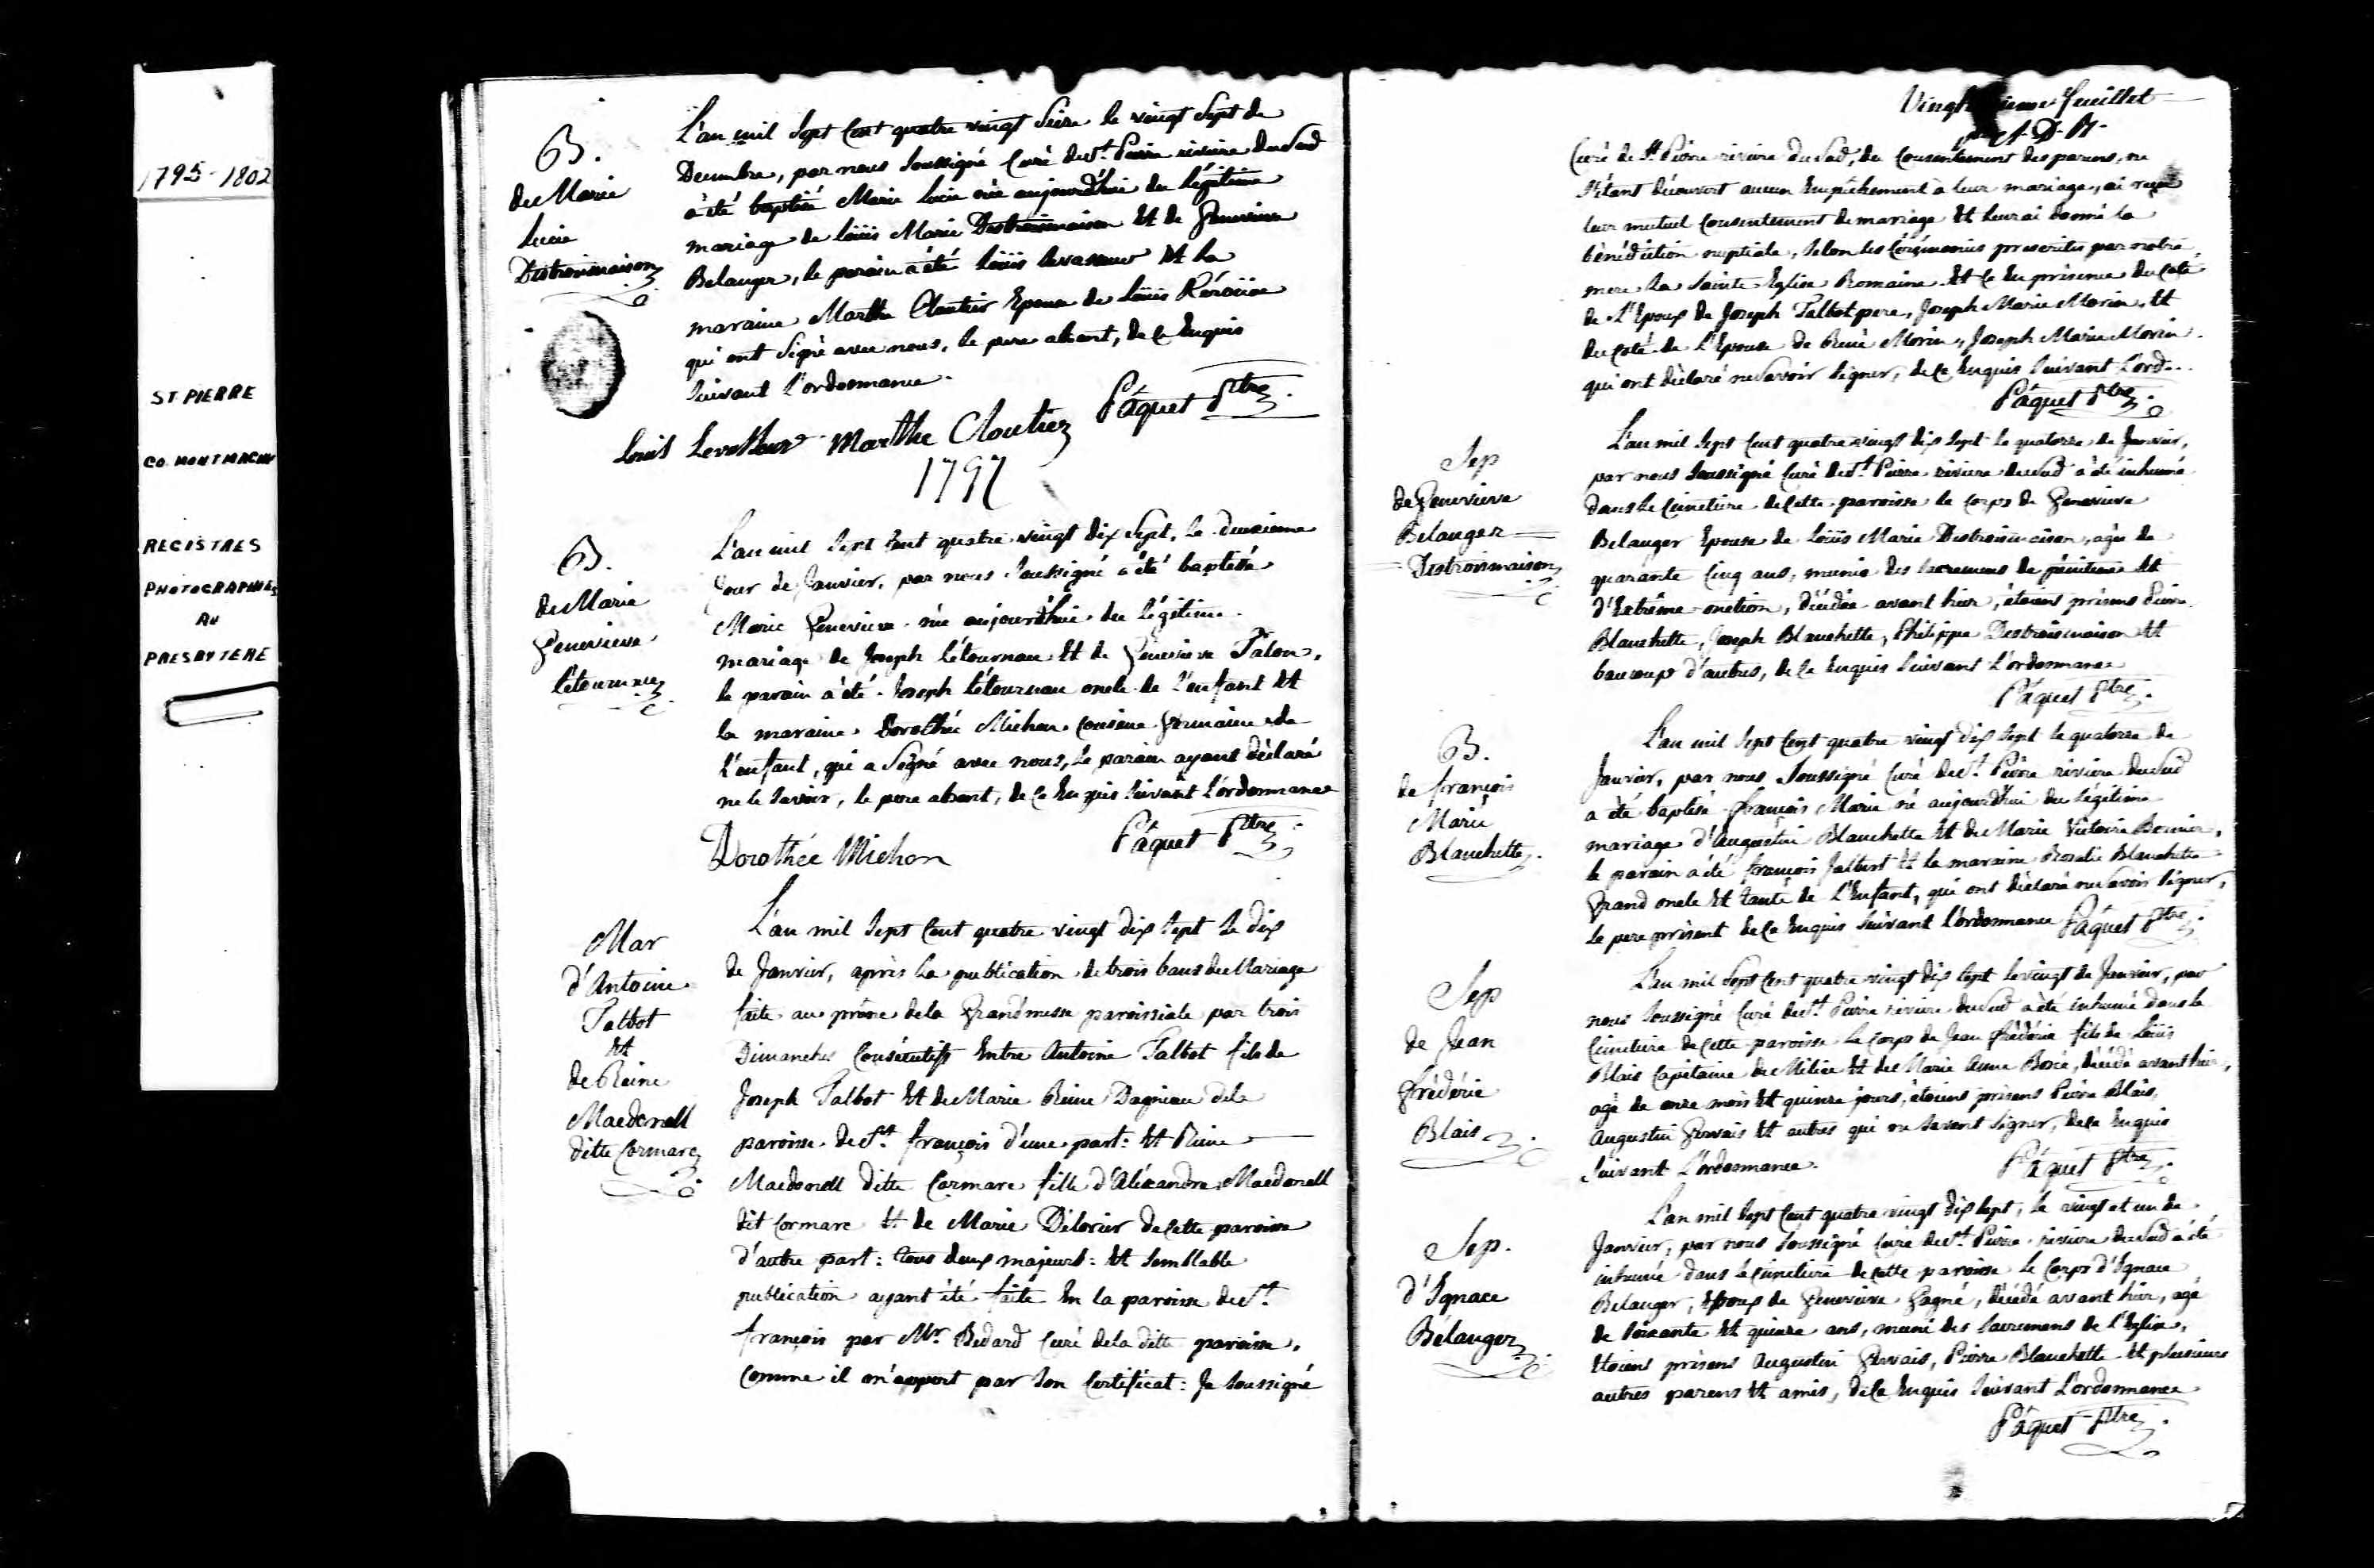 1795-1802
ST. PIERRE
CO. MONTMAGNY
REGISTRES
PHOTOGRAPHIÉS
AU
PRESBYTERE
B.
de Marie
Lucie
Destroismaisons
L'an mil sept cent quatre vingt seize le vingt sept de
Decembre, par nous soussigné Curé de St. Pierre riviere du Sud
à été baptisé Marie Lucie née aujourdhui du légitime
mariage de Loüis Marie Destroismaison Et de Genevieve
Belanger, le parain à été Loüis Levasseur Et la
maraine Marthe Cloutier Epouse de Loüis
qui ont signé avec nous, le pere absent, de ce Enquis
suivant l'ordonnance.
Pâquet Ptre.
Louis Levasseur Marthe Cloutier
1797
B.
de Marie
Genevieve
Létourneau
L'an mil sept cent quatre vingt dix sept, le deuxieme
Jour de Janvier, par nous soussigné à été baptisée
Marie Genevieve née aujourdhui du légitime
mariage de Joseph Létourneau Et de Genevieve Talon,
le parain à été Joseph Létourneau oncle de l'enfant Et
la maraine Dorothée Michon cousine Germaine de
l'enfant, qui a signé avec nous, le parain ayant déclaré
ne le savoir, le pere absent, de ce Enquis suivant l'ordonnance
Pâquet Ptre.
Dorothée Michon
Mar
d'Antoine
Talbot
Et
de Reine
Macdonell
ditte Cormare
L'an mil sept cent quatre vingt dix sept le dix
de Janvier, après la publication de trois bans de Mariage
faite au prône de la Grand'messe paroissiale par trois
Dimanches Consécutifs Entre Antoine Talbot fils de
Joseph Talbot Et de Marie Reine Dagneau de la
paroisse de St. françois d'une part: Et Reine
Macdonell ditte Cormare fille d'Aléxandre Macdonell
dit Cormare Et de Marie Délorier de cette paroisse
d'autre part: tous deux majeurs: Et semblable
publication ayant été faite En la paroisse de St.
françois par Mr. Bedard Curé de la ditte paroisse,
Comme il m'appert par son Certificat: Je soussigné
Vingt feuillet
Curé de St. Pierre riviere du Sud, du Consentement des parens, ne
s'étant découvert aucun Empêchement à leur mariage, ai reçu
leur mutuel Consentement de mariage Et leur ai donné la
bénédiction nuptiale, selon les Cérémonies prescrites par notre
mere la Sainte Eglise Romaine. Et ce En présence du coté
de l'Epoux de Joseph Talbot pere, Joseph Marie Morin, Et
du coté de l'Epouse de René Morin, Joseph Marie Morin
qui ont déclaré ne savoir signer, de ce Enquis suivant l'ord..
Pâquet Ptre.
Sep
de Genevieve
Belanger
Destroismaison
L'an mil sept cent quatre vingt dix sept le quatorze de Janvier,
par nous soussigné Curé de St. Pierre riviere du Sud à été inhumé
dans le Cimetiere de cette paroisse le corps de Genevieve
Belanger Epouse de Loüis Marie Destroismaison, agée de
quarante Cinq ans, munie des sacremens de pénitence Et
d'Extrême-onction, décédée avant hier, étoient présens Pierre
Blanchette, Joseph Blanchette, Philippe Destroismaison Et
beaucoup d'autres, de ce Enquis suivant l'ordonnance
Pâquet Ptre.
B.
de françois
Marie
Blanchette
L'an mil sept cent quatre vingt dix sept le quatorze de
Janvier, par nous soussigné Curé de St. Pierre riviere du Sud
à été baptisé françois Marie né aujourdhui du légitime
mariage d'Augustin Blanchette Et de Marie Victoire Bernier,
le parain à été françois Jalbert Et la maraine Rosalie Blanchette
Grand oncle Et tante de l'Enfant, qui ont déclaré ne savoir signer,
le pere présent de ce Enquis suivant l'ordonnance Pâquet Ptre.
Sep
de Jean
frédéric
Blais
L'an mil sept cent quatre vingt dix sept le vingt de Janvier, par
nous soussigné Curé de St. Pierre riviere du Sud à été inhumé dans le
Cimetiere de cette paroisse le corps de Jean frédéric fils de Loüis
Blais Capitaine de Milice Et de Marie Anne décédé avant hier,
agé de onze mois Et quinze jours, étoient présens Pierre Blais,
Augustin Gervais Et autres qui ne savent signer, de ce Enquis
suivant l'ordonnance.
Pâquet Ptre.
Sep.
d'Ignace
Bélanger
L'an mil sept cent quatre vingt dix sept, le vingt et un de
Janvier, par nous soussigné Curé de St. Pierre riviere du Sud à été
inhumé dans le cimetiere de cette paroisse le Corps d'Ignace
Belanger, Epoux de Genevieve Gagné, décédé avant hier, agé
de soixante Et quinze ans, muni des sacremens de l'Eglise,
Etoient présens Augustin Gervais, Pierre Blanchette Et plusieurs
autres parens Et amis, de ce Enquis suivant l'ordonnance
Pâquet Ptre.